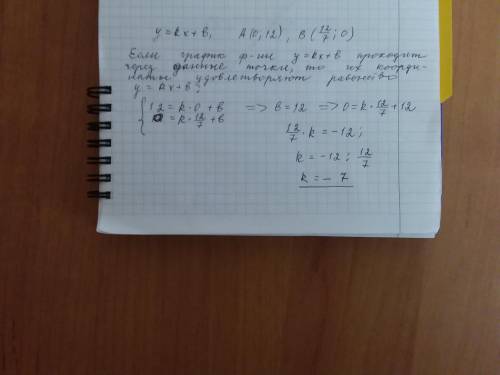 y = kx + в, A(0; 12), B(12/7; 0)
Если график ф-ии y = kx + в проходит
через данные точки, то их коорди-
наты удовлетворяют равенство
y = kx + в:
{ 12 = k · 0 + в => в = 12 => 0 = k · 12/7 + 12
0 = k · 12/7 + в
12/7 · k = -12;
k = -12 : 12/7
k = - 7